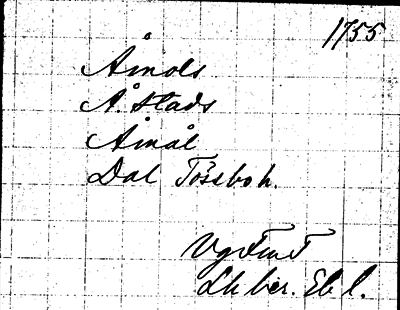 1755
Åmols
Å. Stads
Åmål
Dal Tössboh.
Vg
Lh ber. Ebl.